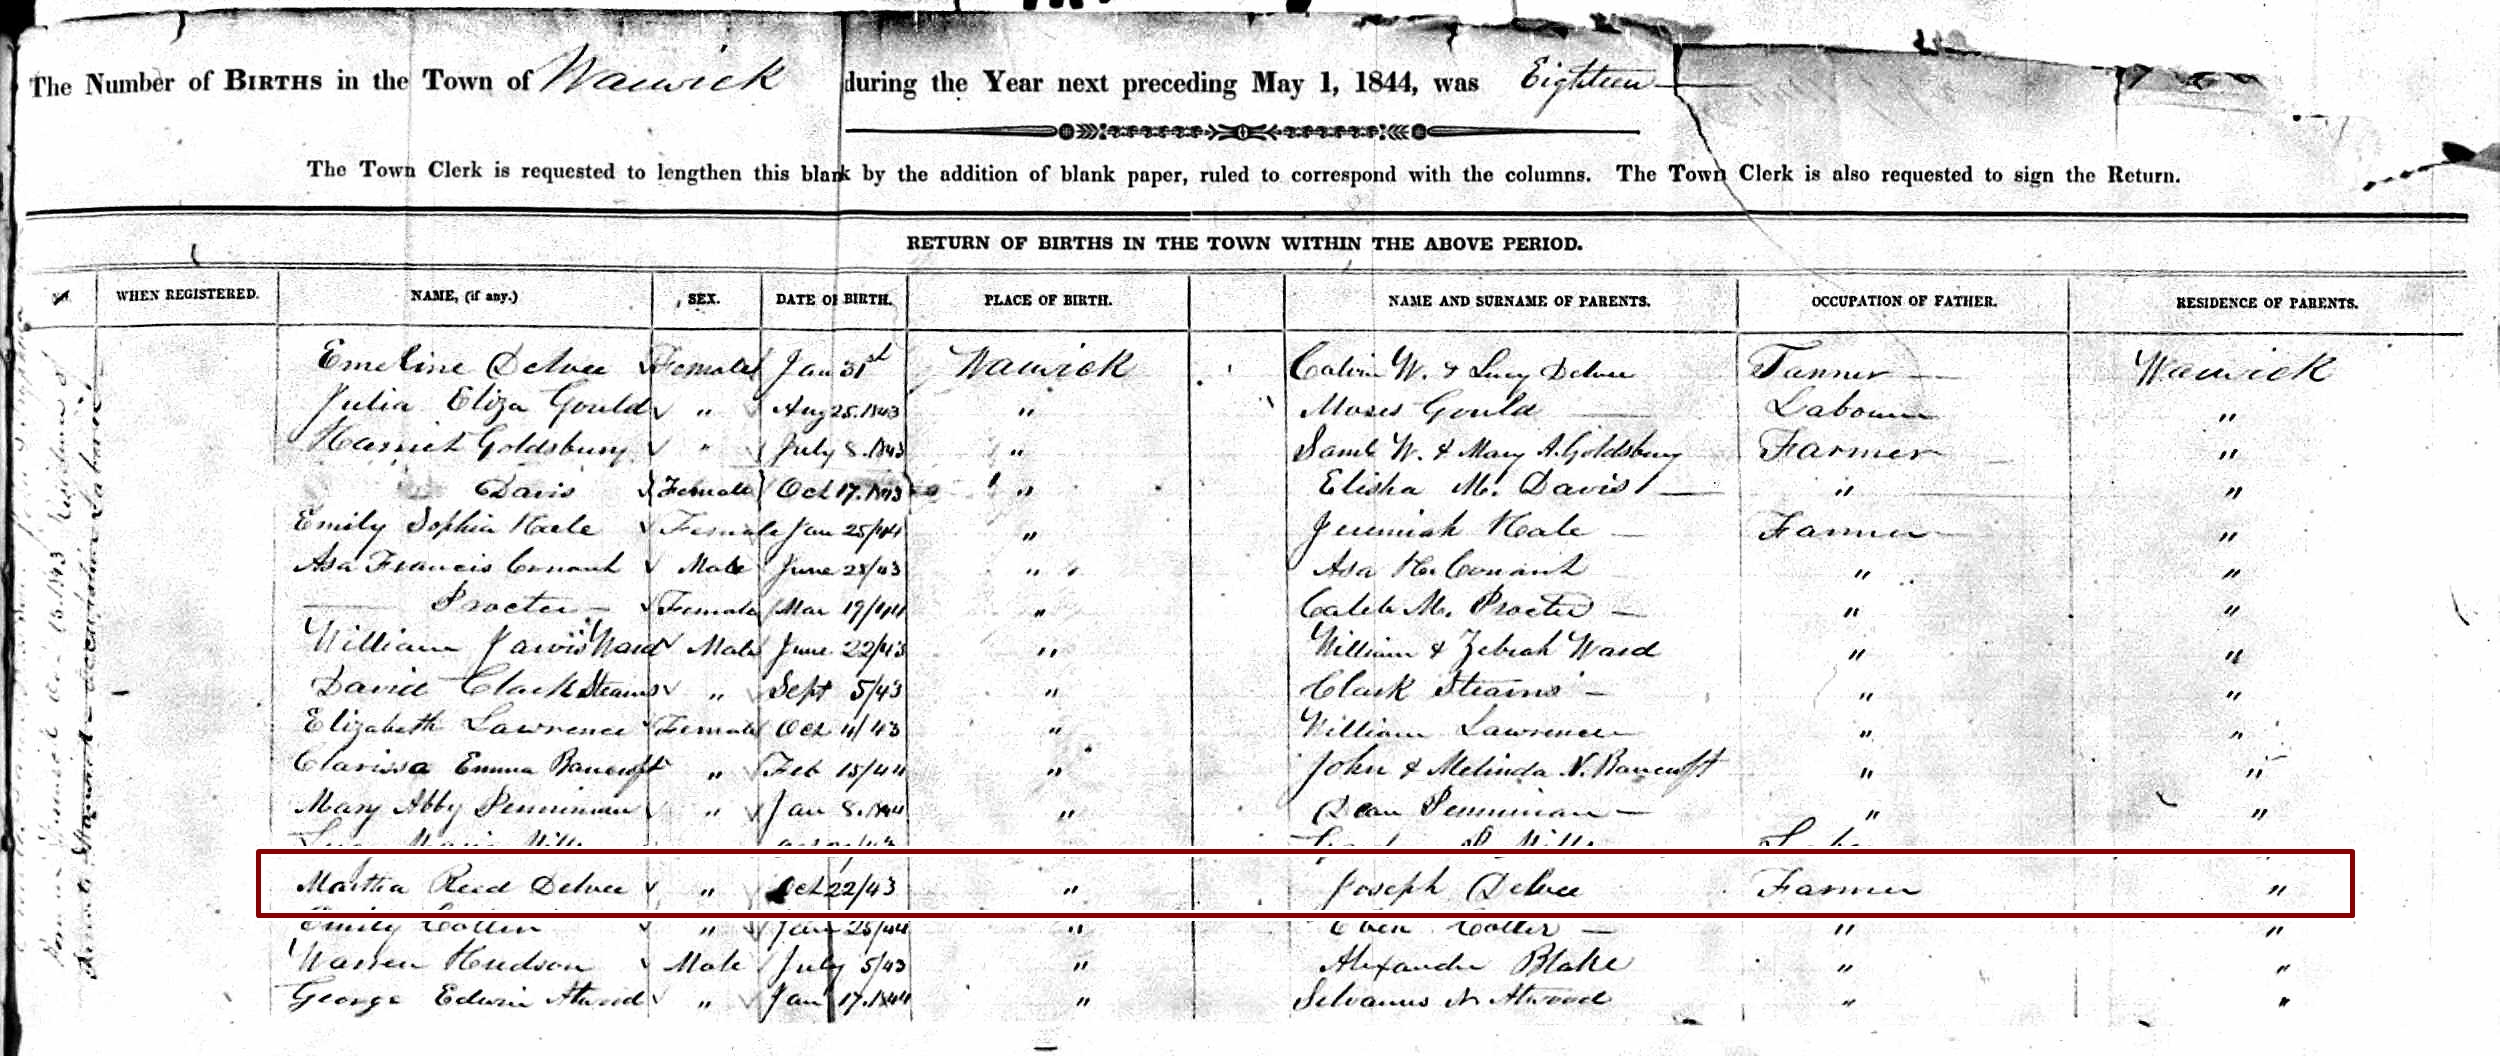 The Number of BIRTHS in the Town of Warwick during the Year next preceding May 1, 1844, was Eighteen
The Town Clerk is requested to lengthen this blank by the addition of blank paper, ruled to correspond with the columns. The Town Clerk is also requested to sign the Return.
RETURN OF BIRTHS IN THE TOWN WITHIN THE ABOVE PERIOD.
WHEN REGISTERED. NAME, (if any.) SEX. DATE OF BIRTH. PLACE OF BIRTH. NAME AND SURNAME OF PARENTS. OCCUPATION OF FATHER. RESIDENCE OF PARENTS.
Emeline Delvee Female Jan 31st Warwick Calvin W. & Lucy Delvee Tanner Warwick
Julia Eliza Gould " Aug 25.1843 " Moses Gould Labourer "
Harriet Goldsbury " July 8.1843 " Saml W. & Mary A. Goldsbury Farmer "
Davis Female Oct 17.1843 " Elisha M. Davis " "
Emily Sophia Hale Female Jan 25/44 " Jeremiah Hale Farmer "
Asa Francis Conant Male June 28/43 " Asa H. Conant " "
Procter Female Mar 19/44 " Caleb M. Procter " "
William Jarvis Ward Male June 22/43 " William & Zebiah Ward " "
David Clark Stearns " Sept 5/43 " Clark Stearns " "
Elizabeth Lawrence Female Oct 11/43 " William Lawrence " "
Clarissa Emma Bancroft " Feb 15/44 " John & Melinda N. Bancroft " "
Mary Abby Penniman " Jan 8.1844 " Dean Penniman " "
Martha Reed Delvee " Oct 22/43 " Joseph Delvee Farmer "
Emily Cotter " Jan 25/44 " Eben Cotter " "
Warren Hudson Male July 5/43 " Alexander Blake " "
George Edwin Atwood " Jan 17.1844 " Selvanus N. Atwood " "